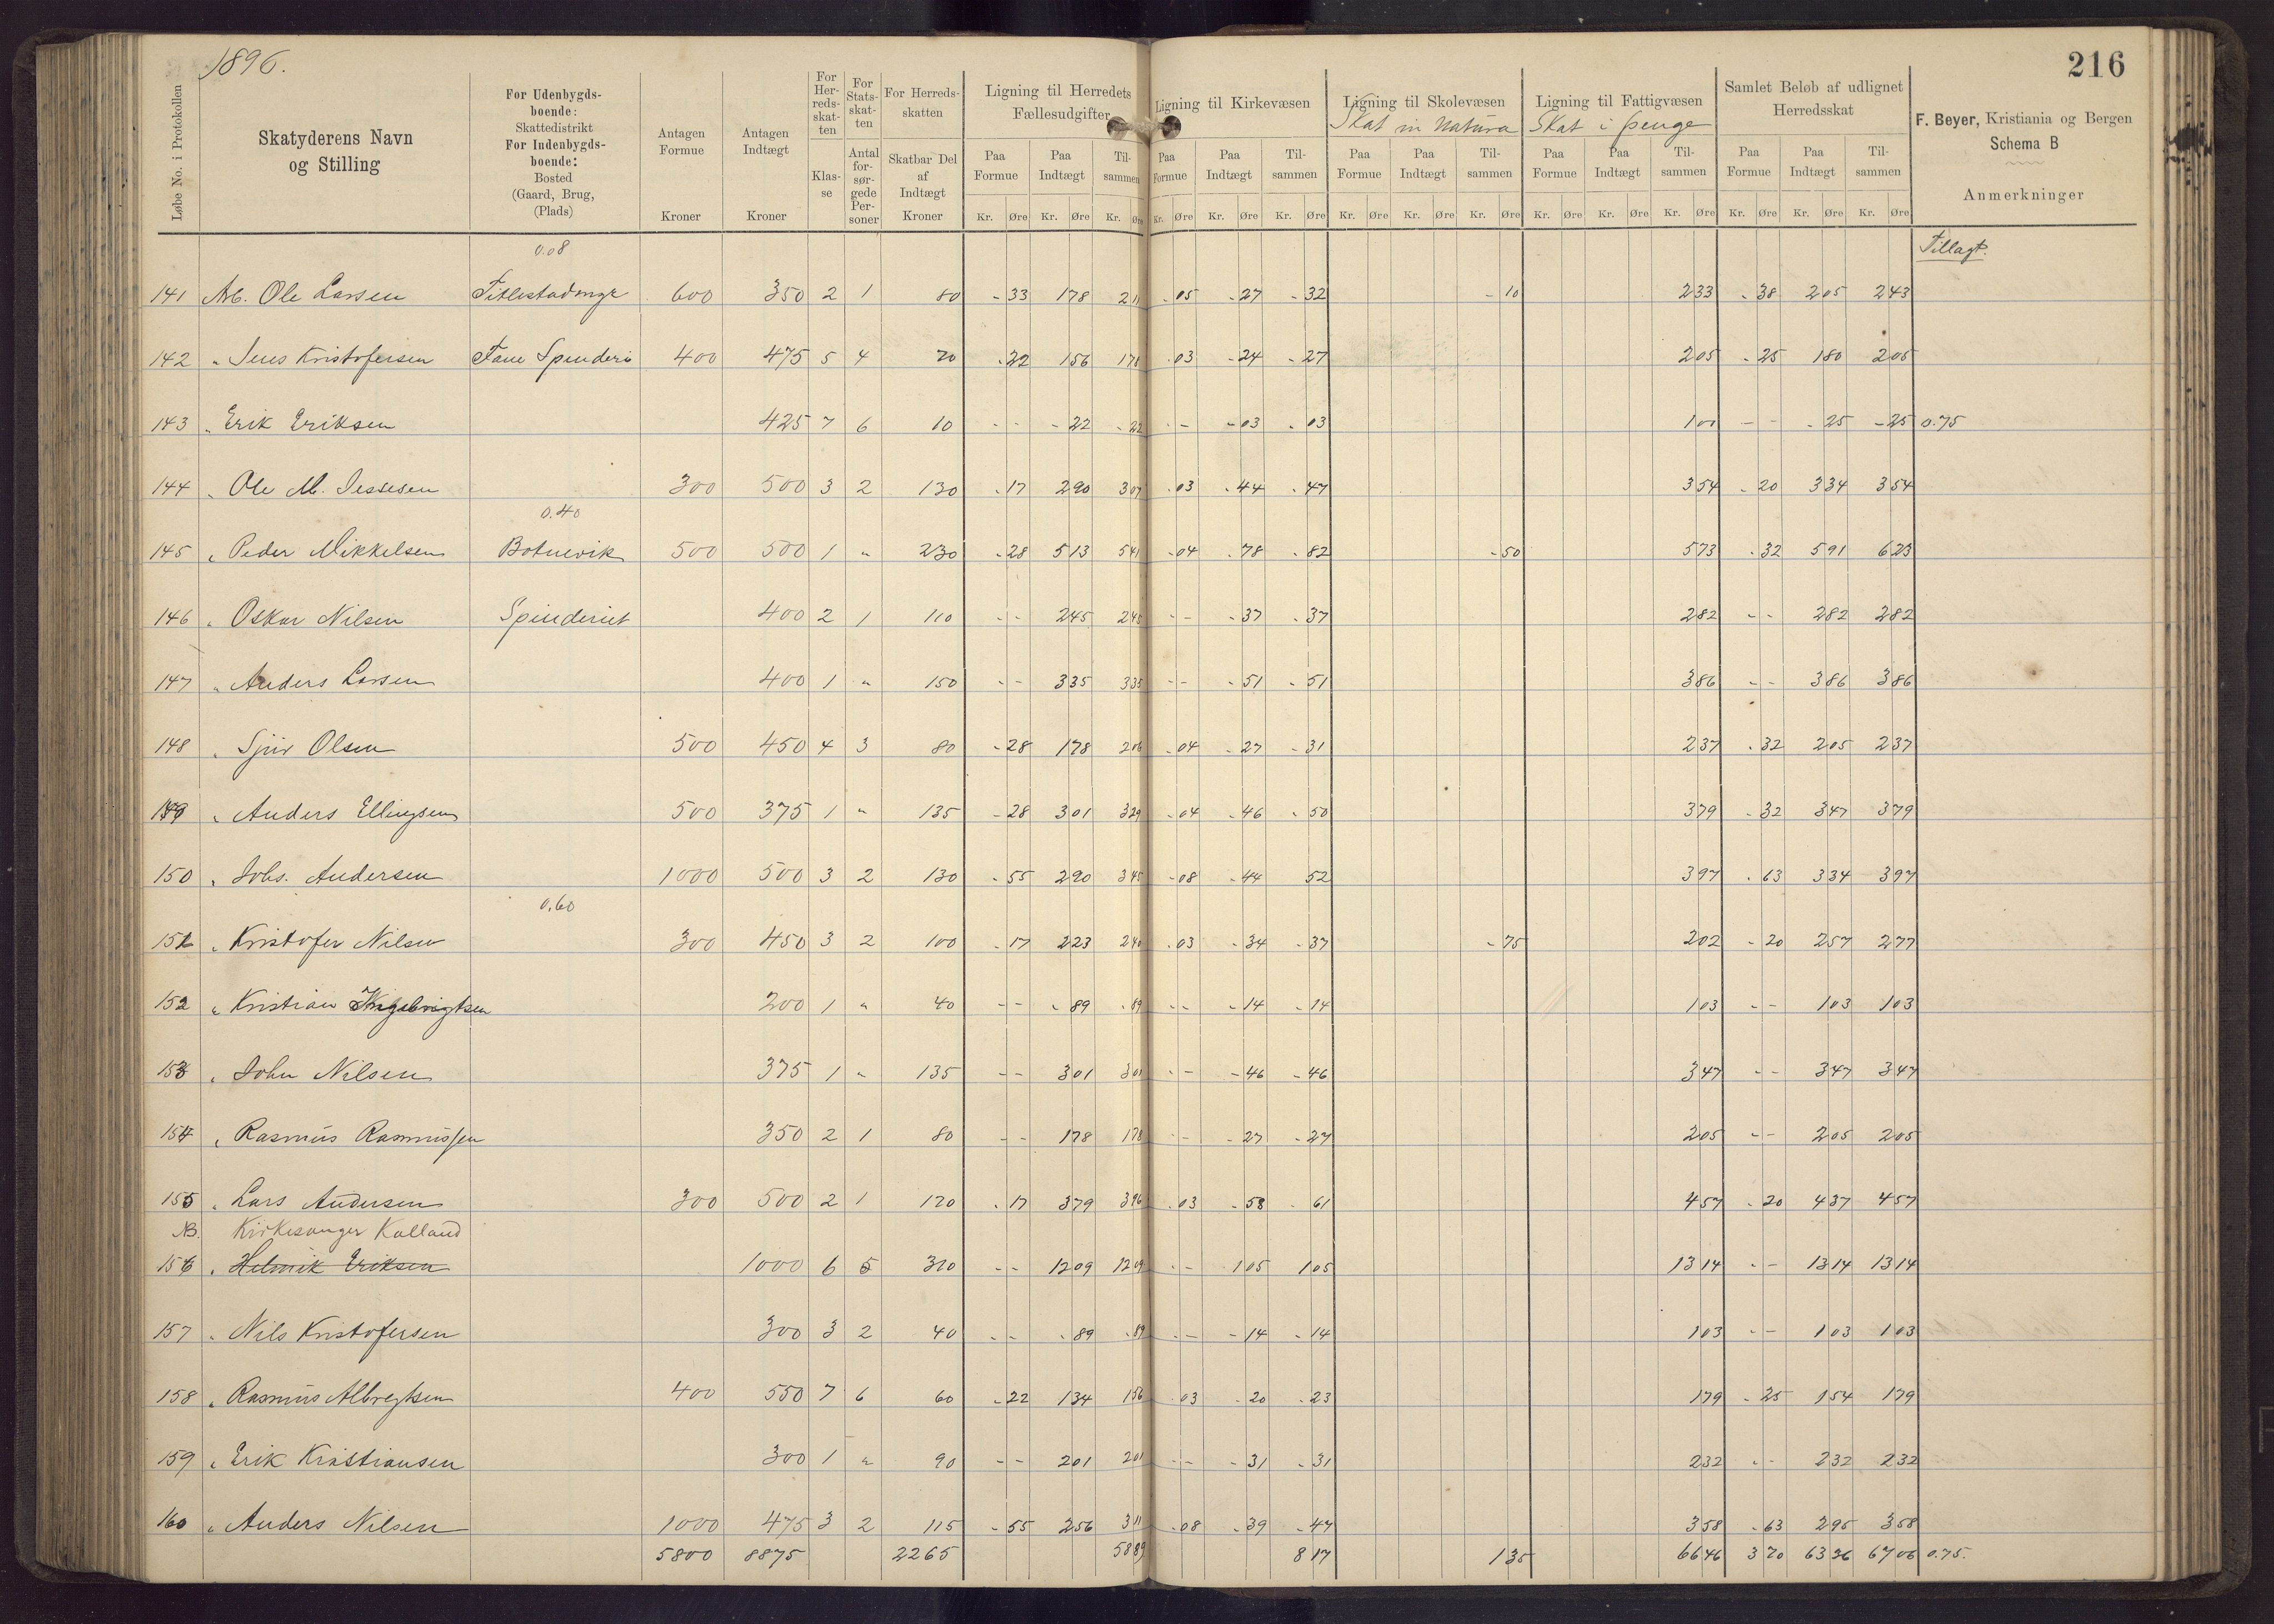 1896.
216
Løbe No. i Protokollen
Skatyderens Navn og Stilling
For Udenbygdsboende: Skattedistrikt For Indenbygdsboende: Bosted (Gaard, Brug, (Plads)
Antagen Formue Kroner
Antagen Indtægt Kroner
For Herredsskatten Klasse
For Statsskatten Antal forsørgede Personer
For Herredsskatten Skatbar Del af Indtægt Kroner
Ligning til Herredets Fællesudgifter
Ligning til Kirkevæsen
Ligning til Skolevæsen
Skat in natura
Ligning til Fattigvæsen
Skat i penge
Samlet Beløb af udlignet Herredsskat
F. Beyer, Kristiania og Bergen
Schema B
Anmerkninger
Paa Formue Paa Indtægt Tilsammen Paa Formue Paa Indtægt Tilsammen Paa Formue Paa Indtægt Tilsammen Paa Formue Paa Indtægt Tilsammen Paa Formue Paa Indtægt Tilsammen
Kr. Øre Kr. Øre Kr. Øre Kr. Øre Kr. Øre Kr. Øre Kr. Øre Kr. Øre Kr. Øre Kr. Øre Kr. Øre Kr. Øre Kr. Øre Kr. Øre Kr. Øre
0.08 Tillagt.
141 Arb. Ole Larsen 600 350 2 1 80 - 33 178 211 - 05 - 27 - 32 - 10 233 - 38 205 243
142 " Jens Kristofersen Fane Spinderi 400 475 5 4 70 - 22 156 178 - 03 - 24 - 27 205 - 25 180 205
143 " Erik Eriksen 425 7 6 10 - - - 22 - 22 - - - 03 - 03 100 - - - 25 - 25 0.75
144 " Ole M. Jessesen 300 500 3 2 130 - 17 290 307 - 03 - 44 - 47 354 - 20 334 354
0.40
145 " Peder Mikkelsen Botnevik 500 500 1 " 230 - 28 513 541 - 04 - 78 - 82 - 50 573 - 32 591 623
146 " Oskar Nilsen Spinderiet 400 2 1 110 - - 245 245 - - - 37 - 37 282 - - 282 282
147 " Anders Larsen 400 1 " 150 - - 335 335 - - - 51 - 51 386 - - 386 386
148 " Sjur Olsen 500 450 4 3 80 - 28 178 206 - 04 - 27 - 31 237 - 32 205 237
149 " Anders Ellingsen 500 375 1 " 135 - 28 301 329 - 04 - 46 - 50 379 - 32 347 379
150 " Johs. Andersen 1000 500 3 2 130 - 55 290 345 - 08 - 44 52 397 - 63 334 397
0.60
151 " Kristofer Nilsen 300 450 3 2 100 - 17 223 240 - 03 - 34 - 37 - 75 202 - 20 257 277
152 " Kristian Ingebrigtsen 200 1 " 40 - - - 89 - 89 - - - 14 - 14 103 - - 103 103
153 " John Nilsen 375 1 " 135 - - 301 301 - - - 46 - 46 347 - - 347 347
154 " Rasmus Rasmussen 350 2 1 80 - - 178 178 - - - 27 - 27 205 - - 205 205
155 " Lars Andersen 300 500 2 1 170 - 17 379 396 - 03 - 58 - 61 457 - 20 437 457
NB. Kirkesanger Kalland
156 " Helmik Eriksen 1000 6 5 310 - - 1209 1209 - - 105 105 1314 - - 1314 1314
157 " Nils Kristofersen 300 3 2 40 - - - 89 - 89 - - - 14 - 14 103 - - 103 103
158 " Rasmus Albregtsen 400 550 7 6 60 - 22 134 156 - 03 - 20 - 23 179 - 25 154 179
159 " Erik Kristiansen 300 1 " 90 - - 201 201 - - - 31 - 31 232 - - 232 232
160 " Anders Nilsen 1000 475 3 2 115 - 55 256 311 - 08 - 39 - 47 358 - 63 295 358
5800 8875 2265 5889 817 135 6646 370 6336 6706 0.75.